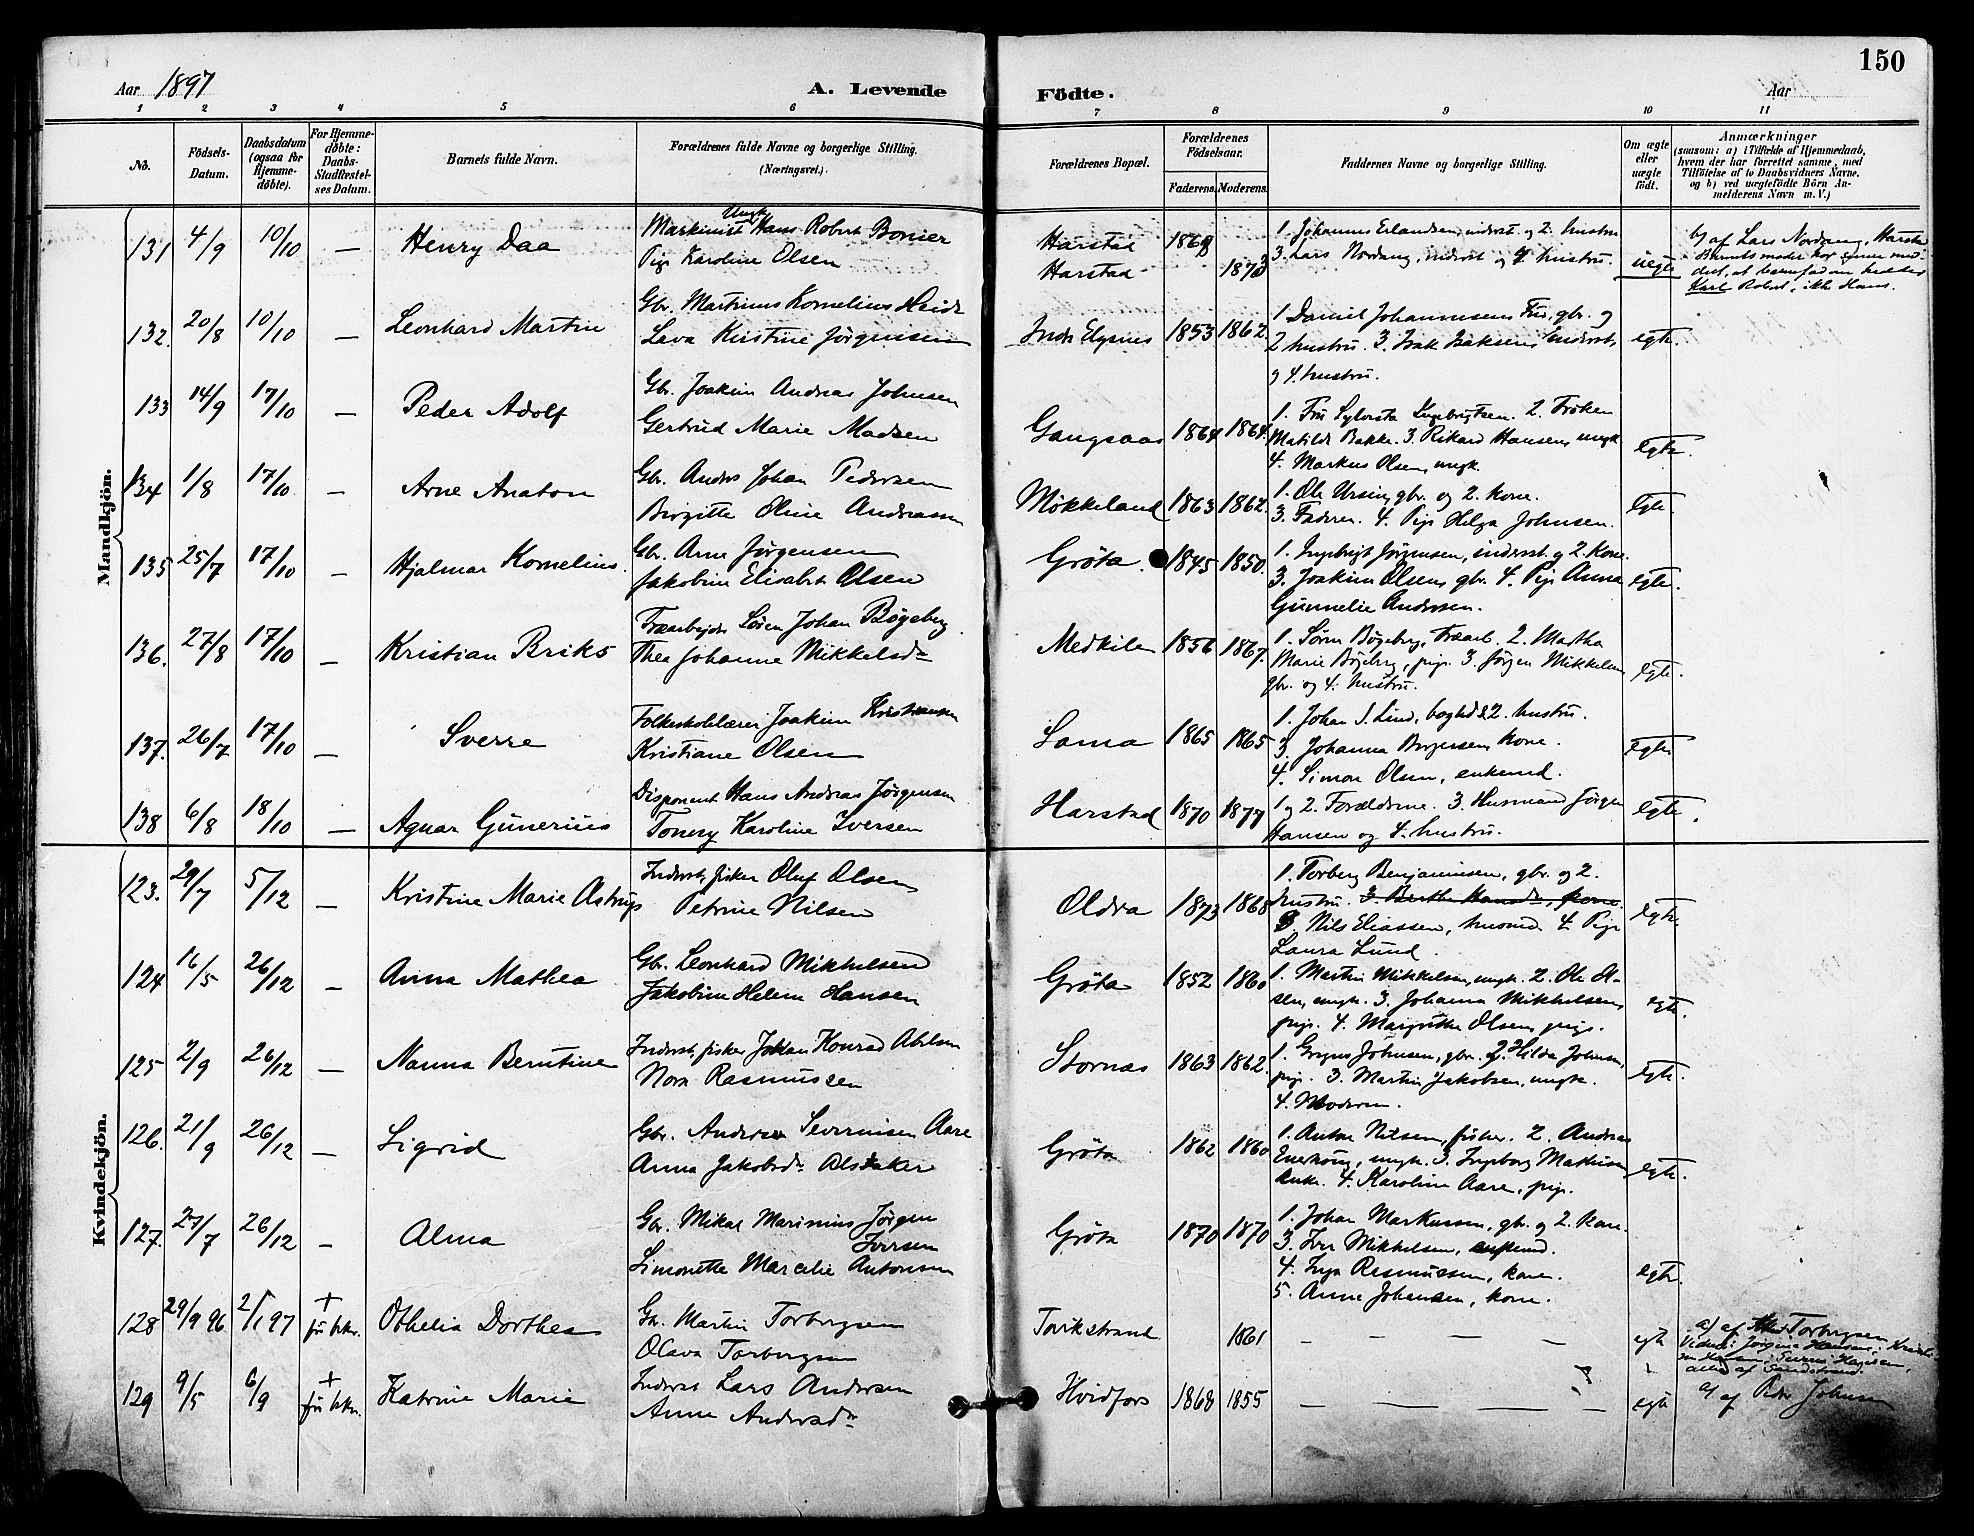 150
Aar 1897 A. Levende Födte. Aar
1 2 3 4 5 6 7 8 9 10 11
No.
Födsels-
Datum.
Daabsdatum
(ogsaa for
Hjemme-
döbte).
For Hjemme-
döbte:
Daabs-
Stadfæstel-
ses Datum.
Barnets fulde Navn.
Forældrenes fulde Navne og borgerlige Stilling.
(Næringsvei.)
Forældrenes Bopæl.
Forældrenes
Födselsaar.
Faderens. Moderens.
Faddernes Navne og borgerlige Stilling.
Om ægte
eller
uægte
födt.
Anmærkninger
(saasom: a) i Tilfælde af Hjemmedaab,
hvem der har forrettet samme, med
Tilföielse af to Daabsvidners Navne.
og b) ved uægtefödte Börn An-
melderens Navn m. V.)
Mandkjön.
131 4/9 10/10 — Henry Daa
Ungk.
Maskinist Hans Robert
Pige Karoline Olsen
Harstad 1869
Harstad 1873
1. Johannes Erlandsen, inderst og 2. hustru
3. Lars Nordang, inderst og 4 hustru.
uegte
b) af Lars Nordang, Harstad
Karl Robert, ikke Hans.
132. 20/8 10/10 — Leonhard Martin
Gbr. Martinus Kornelius
Lava Kristine Jørgensen
Indr Elgsnes 1853 1862.
1 Daniel Johannesen gbr. og
2 hustru. 3. Isak Isaksen inderst,
og 4. hustru.
egte.
133 14/9 17/10 — Peder Adolf
Gbr. Joakim Andreas Johnsen
Gertrud Marie Madsen
Gangsaas 1864 1864.
1. Fru Ingebrigtsen. 2. Frøken
Matilde Bakke. 3. Rikard Hansen, ungk
4. Markus Olsen, ungk.
Egte.
134 1/8 17/10 — Arne Anaton
Gbr. Anders Johan Pedersen
Birgitte Oline Andreassen
Møkkeland 1863 1862.
1. Ole Ursin, gbr. og 2. kone.
3. Faderen. 4. Pige Helga Johnsen.
Egte.
135 25/7 17/10 — Hjalmar Kornelius.
Gbr. Arne Jørgensen
Jakobine Elisabet Olsen
Grøta. 1845 1850.
1. Ingebrigt Jørgensen, inderst og 2. Kone.
3. Joakim Olsen, gbr. 4. Pige Anna
Gunnelie Andersen.
egte.
136. 27/8 17/10 — Kristian Briks
Træarbejder Sören Johan Bøgeberg
Thea Johanne Mikkelsdr
Medkila 1856 1867.
1. Sören Bøgeberg, træarb. 2. Martha
Marie Bøgeberg, pige. 3. Jörgen Mikkelsen
gbr. og 4. hustru.
Egte.
137. 26/7 17/10 — Sverre
Folkeskolelærer Joakim Kristiansen
Kristiane Olsen
Sama 1865 1865
1. Johan S. Lind, boghd & 2. hustru.
3. Johanna Birgersen, kone.
4. Simon Olsen, enkemd.
Egte
138 6/8 18/10 — Agnar Gunerius
Disponent Hans Andreas Jørgensen
Tonny Karoline Iversen
Harstad 1870 1877
1 og 2. Forældrene. 3. Husmand Jørgen
Hansen og 4. hustru.
Egte.
Kvindekjön.
123. 29/7 5/12 — Kristine Marie Astrup
Inderst, fisker Oluf Olsen
Petrine Nilsen
Oldra 1873 1868
1. Torberg Benjaminsen, gbr. og 2.
hustru. 3 Berthe Hansdr, kone.
3. Nils Eliassen, husmd. 4 Pige
Laura Lund.
Egte.
124 16/5 26/12 — Anna Mathea
Gbr. Leonhard Mikkelsen
Jakobine Helene Hansen
Grøta 1852 1860
1. Martin Mikkelsen, ungk. 2. Ole Ol-
sen, ungk. 3. Johanna Mikkelsen,
pige. 4. Margrethe Olsen, pige.
egte.
125 2/9 26/12 — Nanna Berntine
Inderst, fisker Johan Konrad Abelsen
Nora Rasmussen
Stornæs 1863 1862.
1. Johnsen, gbr. 2. Hilda Johnsen,
pige. 3. Martin Jakobsen, ungk.
4. Moderen.
Egte.
126. 21/9 26/12 — Sigrid
Gbr. Andreas Severinsen Aare
Anna Jakobsdr Alsaker
Grøta 1862 1860
1. Anton Nilsen, fisker. 2. Andreas
ungk. 3. Ingeborg Mathisen,
enke. 4. Karoline Aare, pige.
egte.
127. 27/7 26/12 — Alma
Gbr. Mikal Marinius Jørgen
Iversen
Simonette Marcelie Antonsen
Grøta 1870 1870
1. Johan Markussen, gbr. og 2. kone.
3. Iver Mikkelsen, enkemd.
4. Inga Rasmussen, kone.
5. Anne Johansen, kone.
egte.
128 29/9 96 2/1 97 + før bekr. Othelia Dorthea
Gbr. Martin Torbergsen
Olava Torbergsen
Torikstrand 1861 — — — —
egte
a) af Torbergsen
alle af Sandstrand.
129 9/5 6/9 + før bekr. Katrine Marie
Inderst Lars Andersen
Anne Andersdr
Hvidfors 1868 1855 — — — —
egte
a) af Peder Johnsen